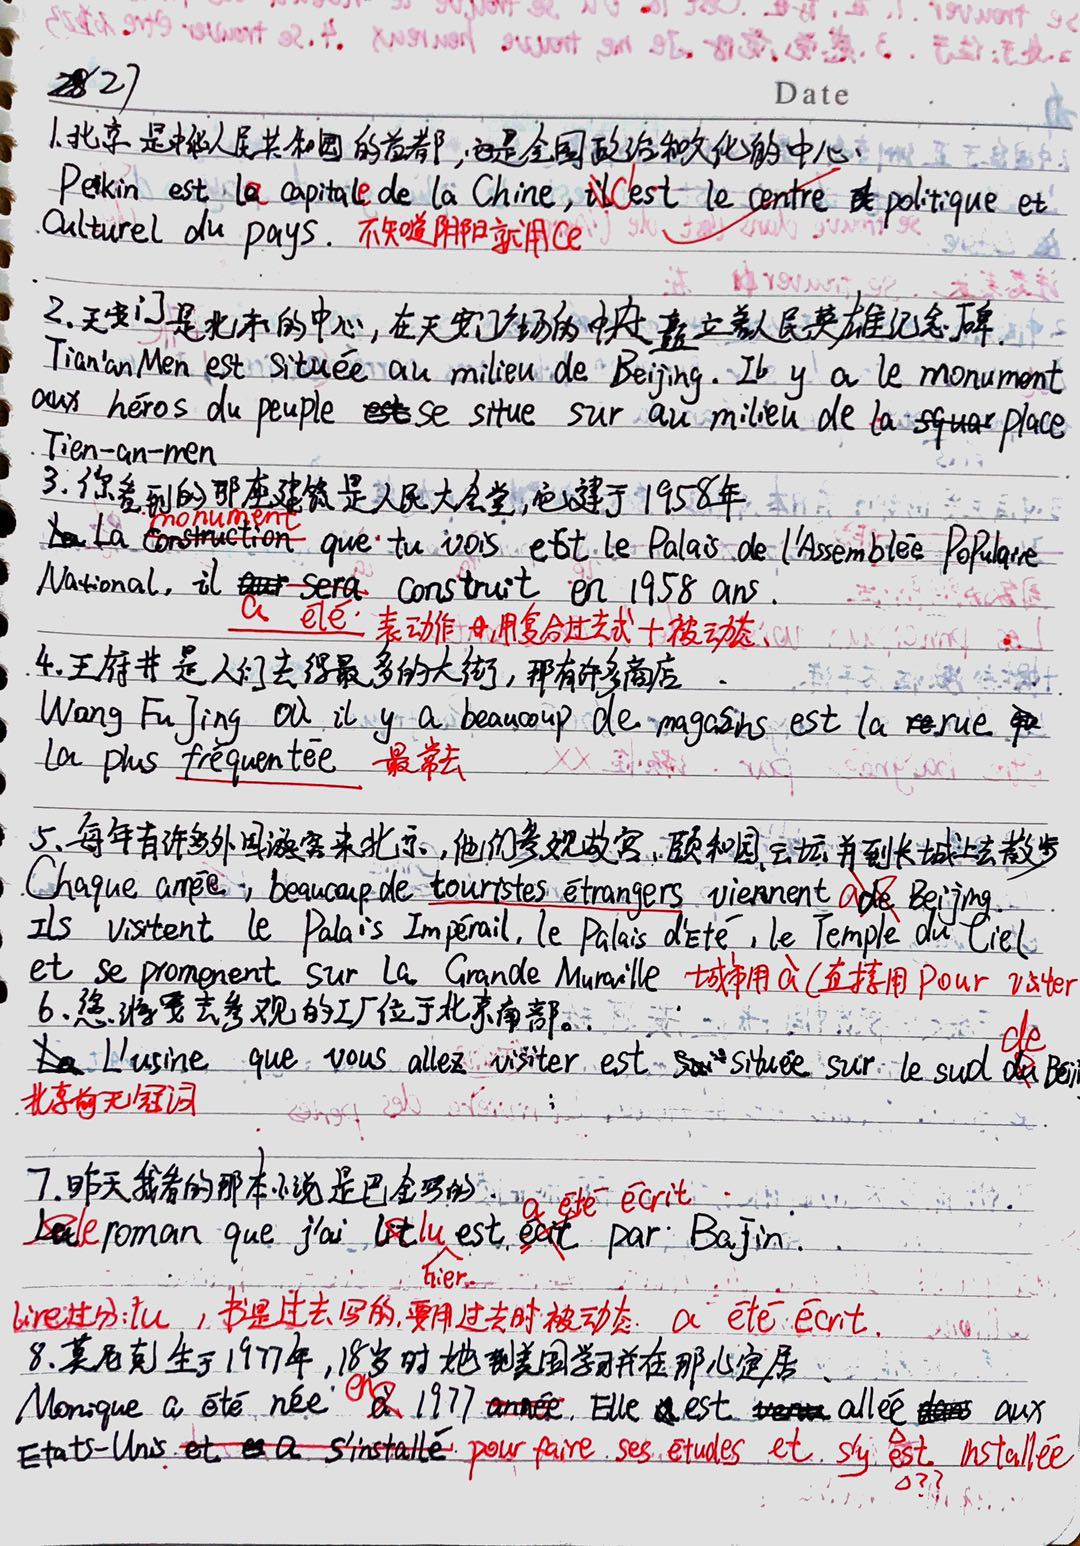 27
Date
1.北京是中华人民共和国的首都,它是全国政治和文化的中心.
Pekin est la capitale de la Chine, c'est le centre politique et
Culturel du pays. 不知道阴阳就用ce
2.天安门是北京的中心,在天安门广场的中央矗立着人民英雄纪念碑.
Tian'an Men est située au milieu de Beijing. Il y a le monument
aux héros du peuple se situe sur au milieu de la place
Tien-an-men
3.你看到的那座建筑是人民大会堂,它建于1958年
monument
La construction que tu vois est le Palais de l'Assemblée Populaire
National, il sera construit en 1958 ans.
a été 表动作 用复合过去式+被动态
4.王府井是人们去得最多的大街,那有许多商店
Wang Fu Jing où il y a beaucoup de magasins est la rue
la plus fréquentée 最常去
5.每年有许多外国游客来北京,他们参观故宫,颐和园,天坛并到长城上去散步
Chaque année, beaucoup de touristes étrangers viennent à Beijing.
Ils visitent le Palais Impérail, le Palais d'Eté, le Temple du Ciel
et se promenent sur La Grande Muraille 城市用à(直接用pour visiter
6.您将要去参观的工厂位于北京南部。
de
L'usine que vous allez visiter est située sur le sud du Beiji
北京前无冠词
7.昨天我看的那本小说是巴金写的.
a été écrit
le roman que j'ai lu est écit par Bajin.
hier.
Lire过分:lu ,书是过去写的,要用过去时被动态. a été écrit.
8.莫尼克生于1977年,18岁时她到美国学习并在那儿定居
en
Monique a été née à 1977 année. Elle est allée aux
Etats-Unis et a s'installé pour faire ses études et s'y est installée
△??